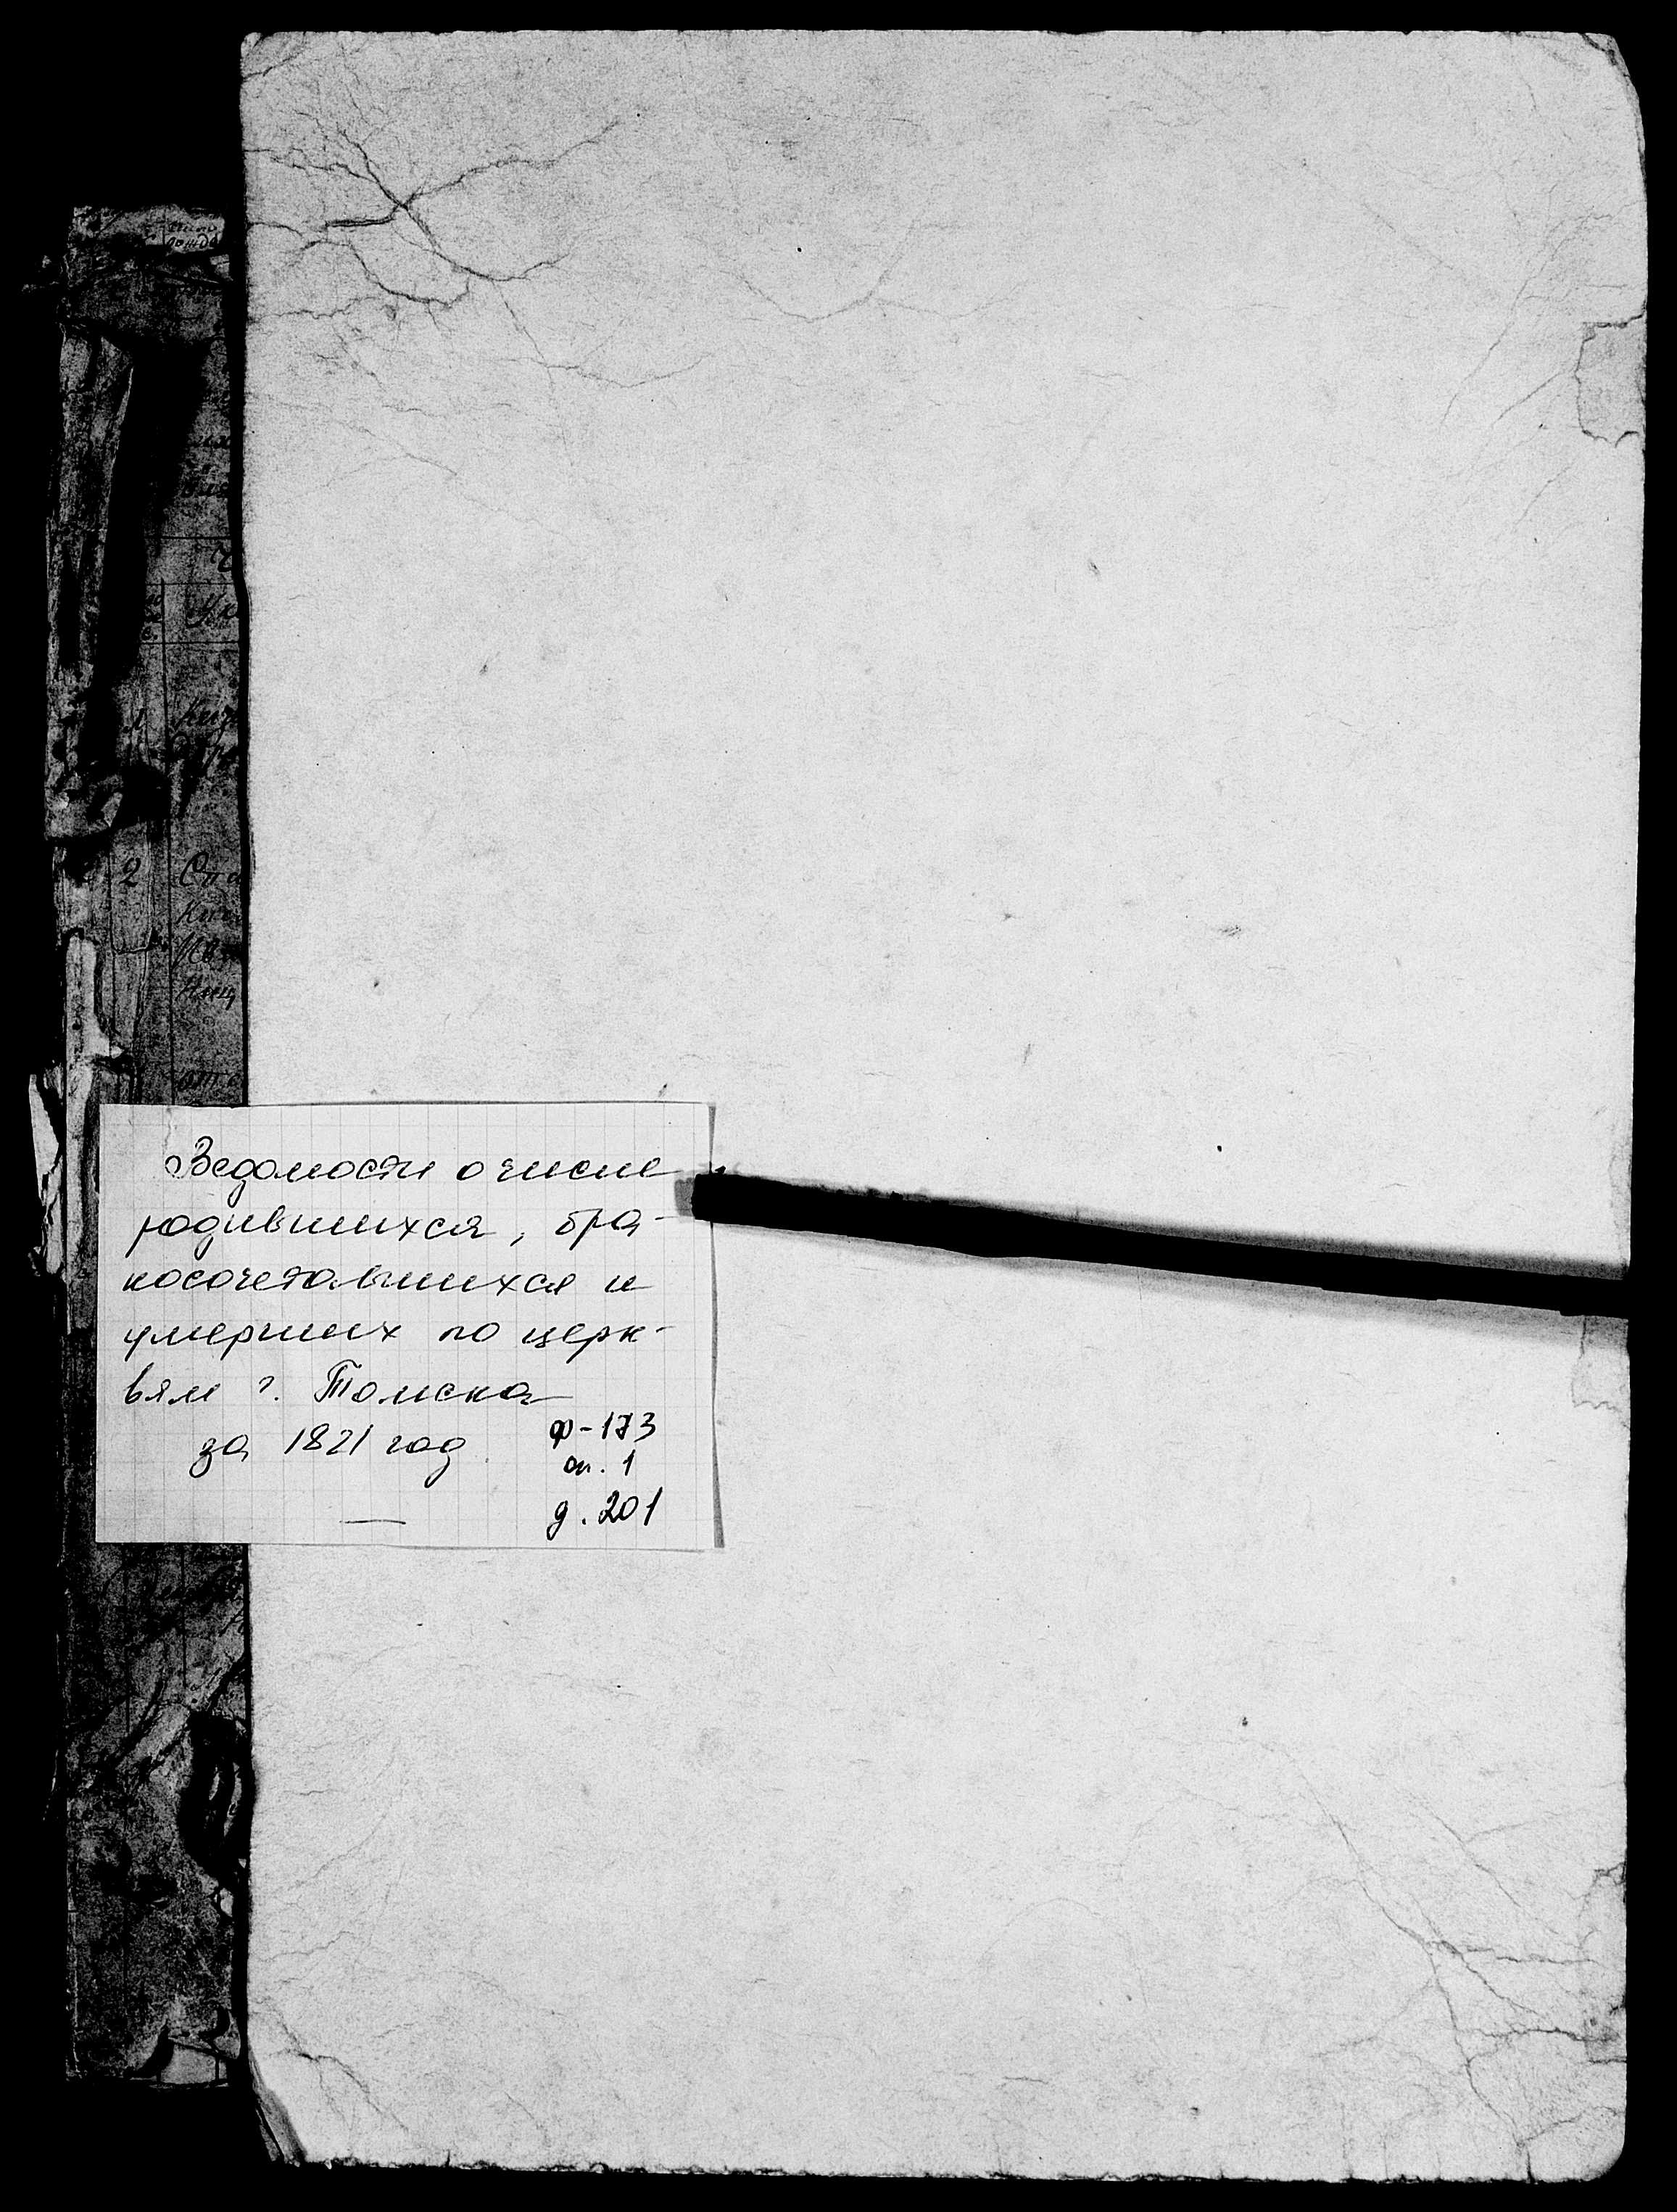 Ведомости о числе
родившихся, бра-
косочетавшихся и
умерших по церк-
вям г. Томска
за 1821 год
ф-173
оп. 1
д. 201
1
2